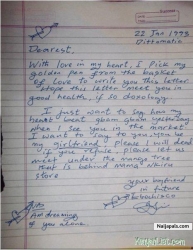 22 Jan 1998
Pittomalia
Dearest,
With love in my heart, I pick my
golden pen from the basket
of love to write you this letter
Hope this letter meet you in
good health, if so doxology
I just want to say how my
heart went gbam gbam yesterday
when I see you in the market
I want to say to you, you be
my girlfriend please I will dead
if you refuse. Please let us
meet under the mango tree
that is behind mama
store
your boyfriend
in future
Am dreaming
of you alone
Naijapals.com